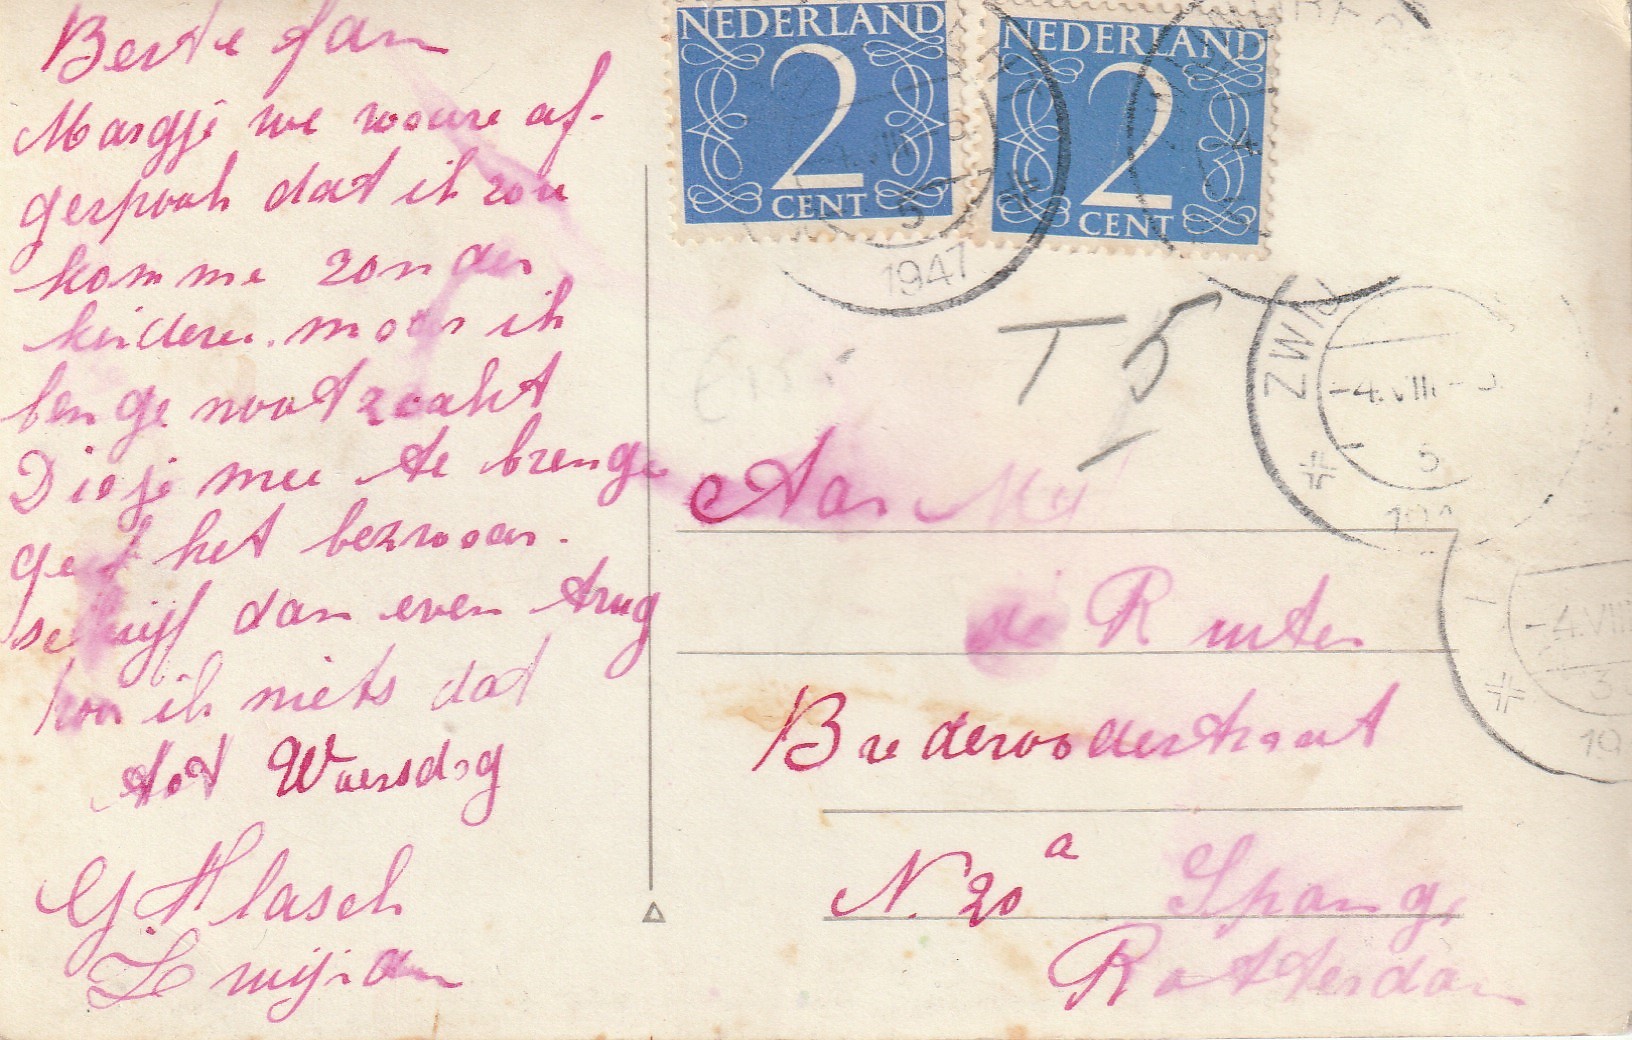 Beste Jan
Margje we waure af-
gesprook dat ik zou
komme zonder
kindere. maar ik
ben ge nootzaakt
Diesje mee te brenge
geef het bezwaar.
schrijf dan even trug
hoor ik niets dat
tot Woensdag
G Hlasch
Zwijn
NEDERLAND
2
CENT
NEDERLAND
2
CENT
5
1947
T 5
ZWIJ
-4.VIII
5
-4.VIII
3
19
Aan
de Ruiter
Brederoodestraat
N. 20 a Spange
Rotterdam